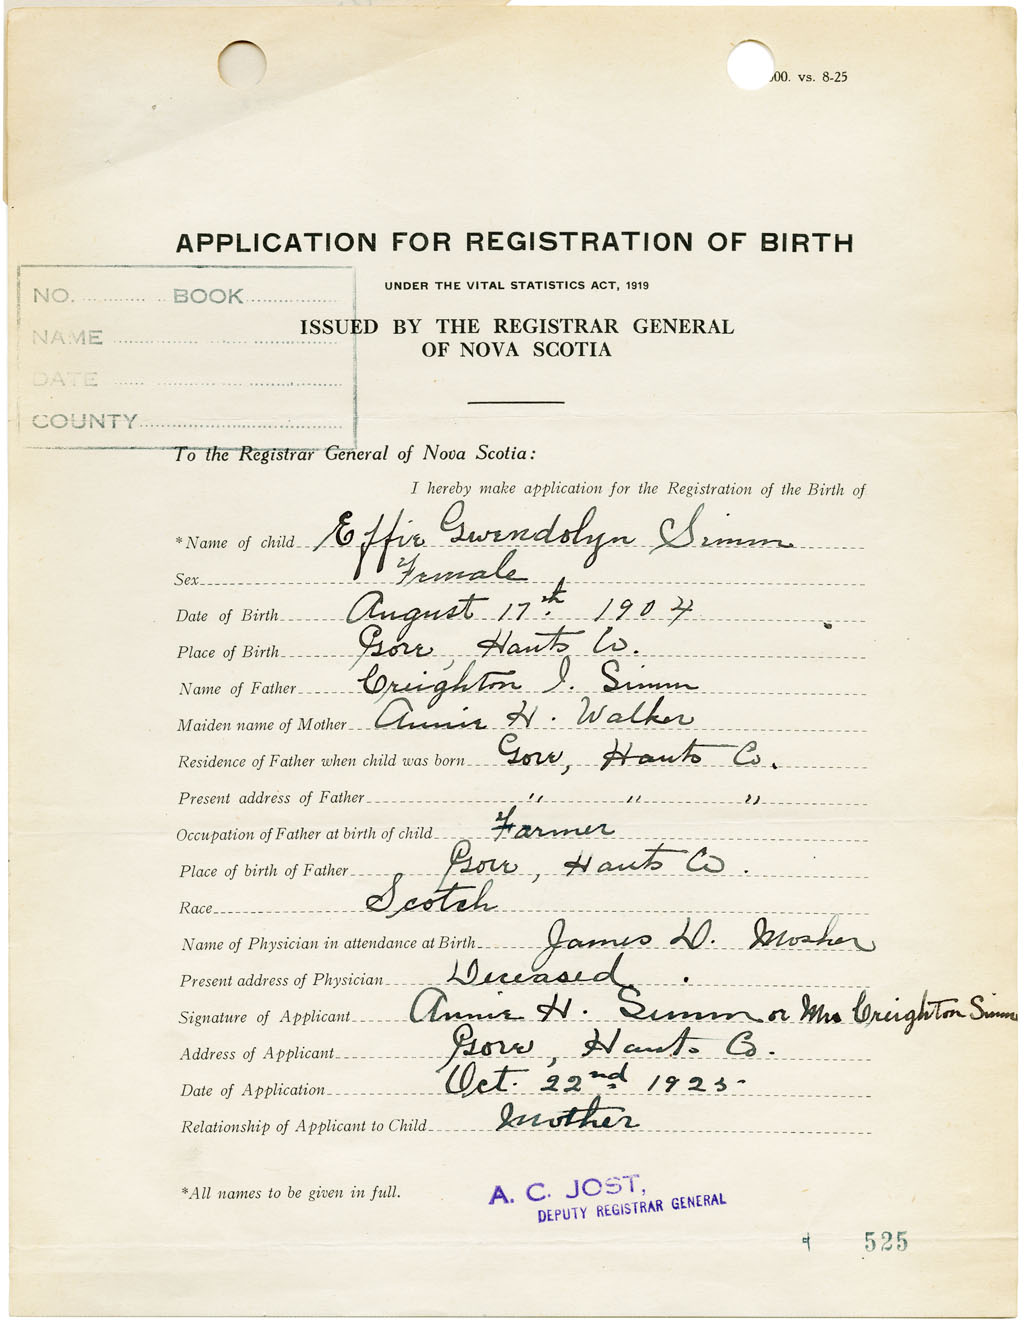 00. vs. 8-25
APPLICATION FOR REGISTRATION OF BIRTH
UNDER THE VITAL STATISTICS ACT, 1919
ISSUED BY THE REGISTRAR GENERAL
OF NOVA SCOTIA
NO. BOOK
NAME
DATE
COUNTY
To the Registrar General of Nova Scotia:
I hereby make application for the Registration of the Birth of
*Name of child Effie Gwendolyn Simm
Sex Female
Date of Birth August 17th. 1904
Place of Birth Gore, Hants Co.
Name of Father Creighton I. Simm
Maiden name of Mother Annie H. Walker
Residence of Father when child was born Gore, Hants Co.
Present address of Father " " "
Occupation of Father at birth of child Farmer
Place of birth of Father Gore, Hants Co.
Race Scotch
Name of Physician in attendance at Birth James D. Mosher
Present address of Physician Deceased.
Signature of Applicant Annie H. Simm or Mrs Creighton Simm
Address of Applicant Gore, Hants Co.
Date of Application Oct. 22nd 1925-
Relationship of Applicant to Child Mother
*All names to be given in full.
A. C. JOST,
DEPUTY REGISTRAR GENERAL
525